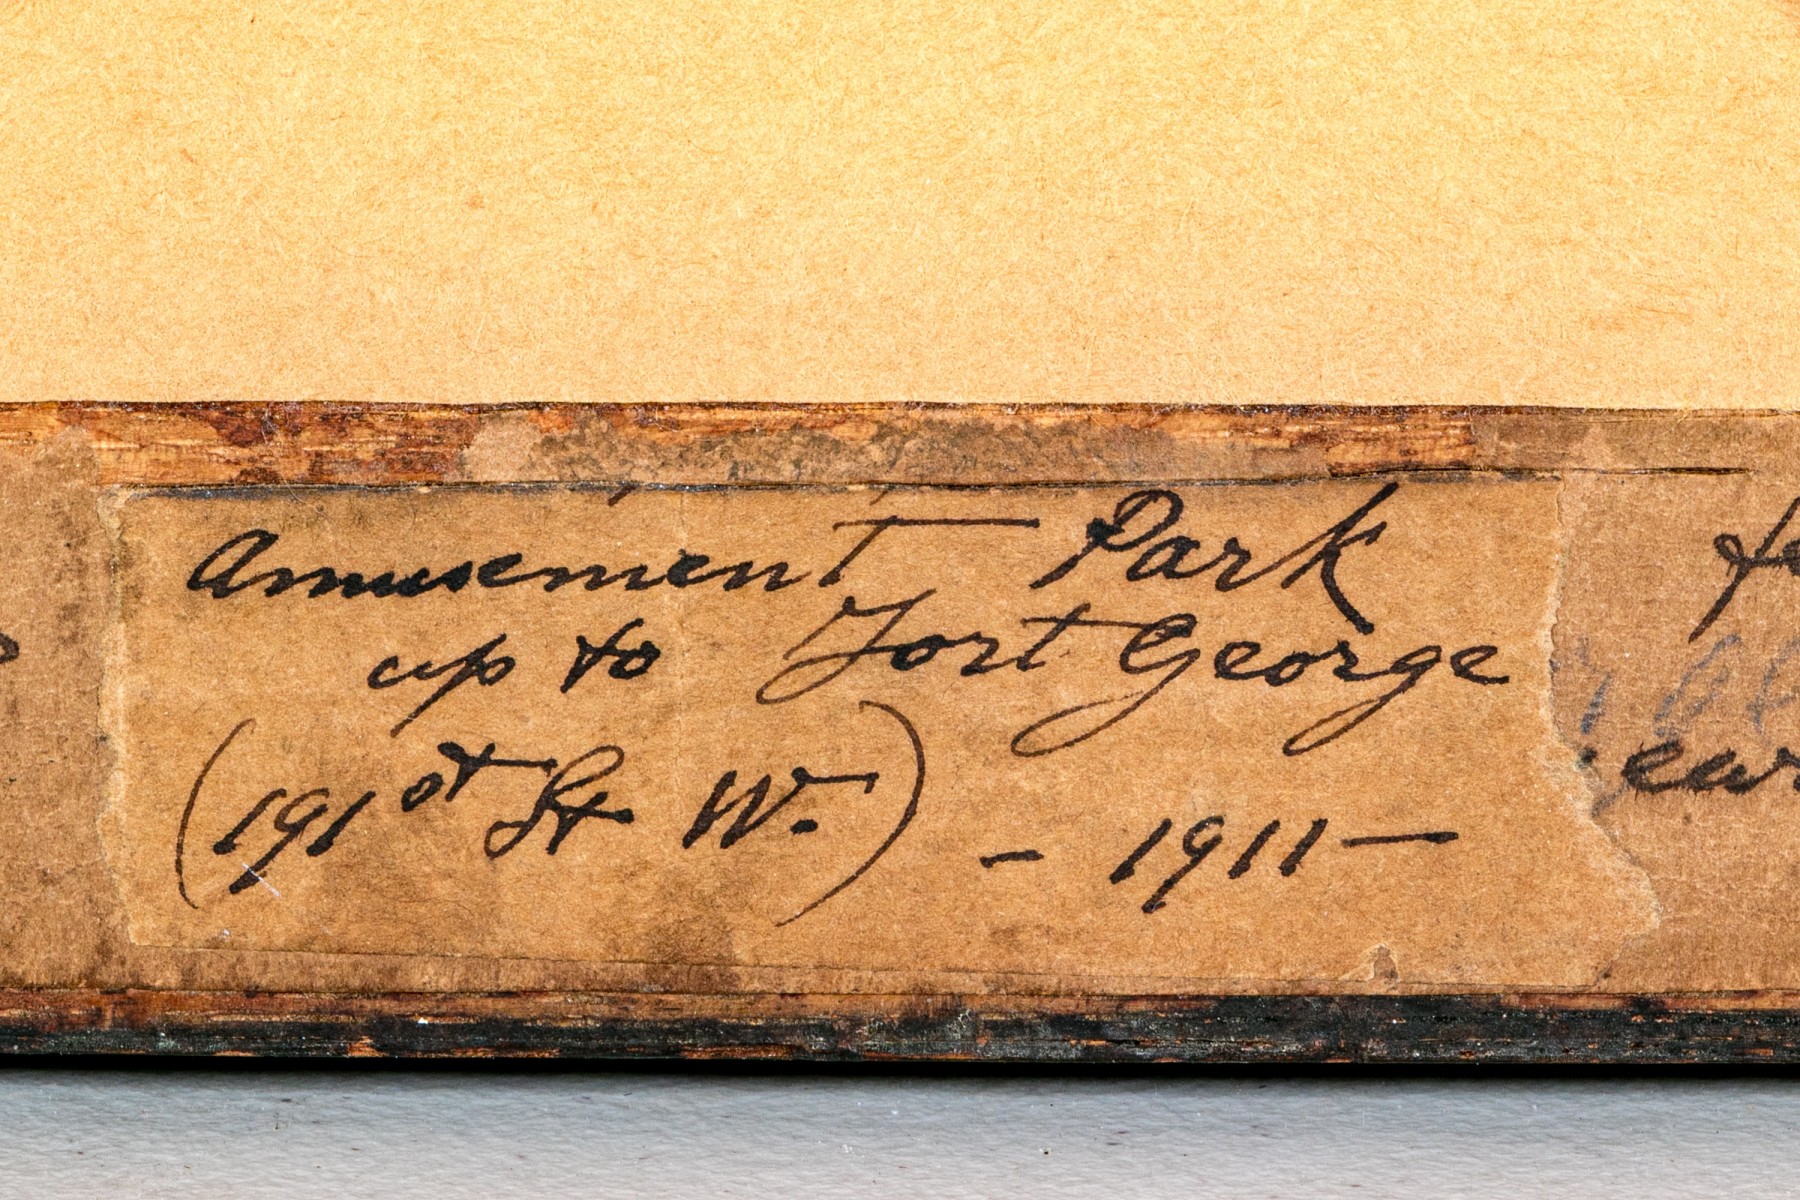 Amusement Park
up to Fort George
(191st St W.) - 1911 -